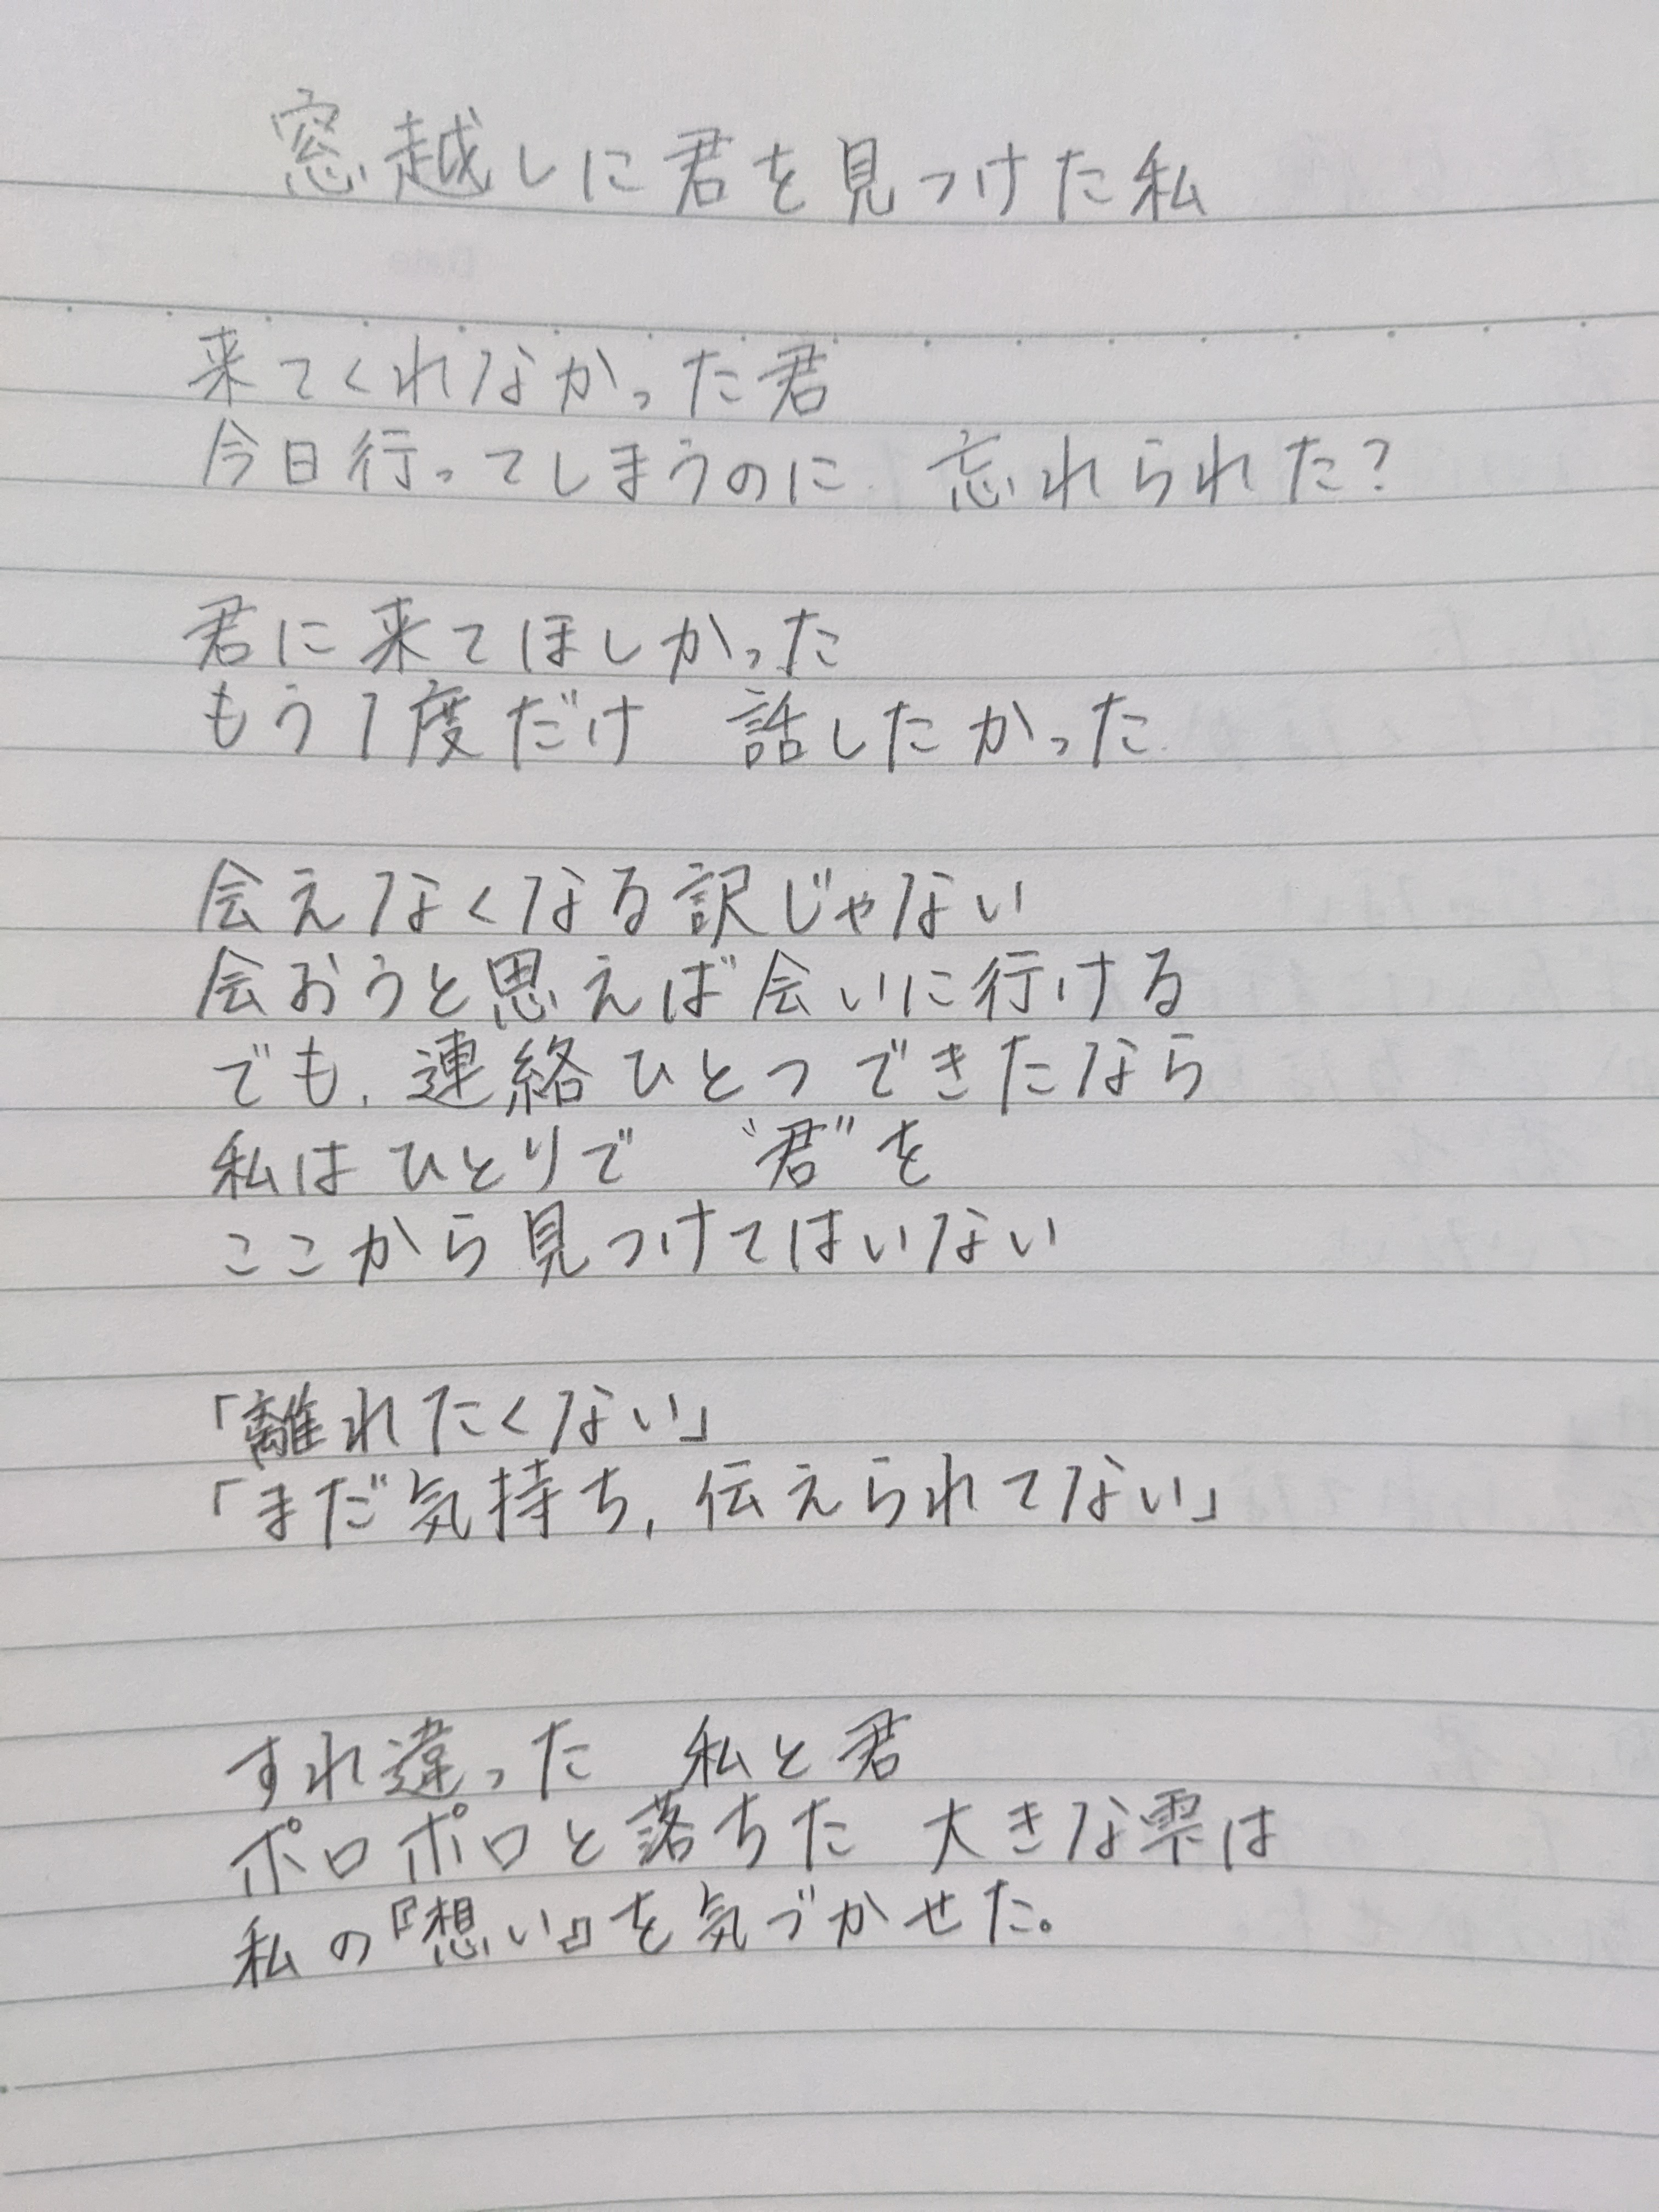 窓越しに君を見つけた私
来てくれなかった君
今日行ってしまうのに 忘れられた?
君に来てほしかった
もう1度だけ 話したかった
会えなくなる訳じゃない
会おうと思えば会いに行ける
でも、連絡ひとつできたなら
私はひとりで “君”を
ここから見つけてはいない
「離れたくない」
「まだ気持ち、伝えられてない」
すれ違った 私と君
ポロポロと落ちた 大きな雫は
私の『想い』を気づかせた。